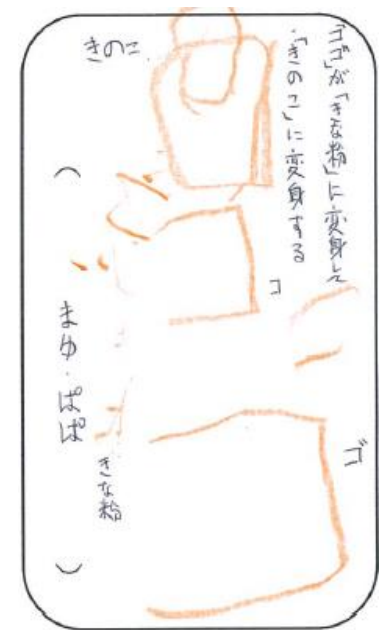 「ゴゴ」が「きな粉」に変身して
「きのこ」に変身する
コ
ゴ
きのこ
きな粉
（まゆ・ぱぱ）